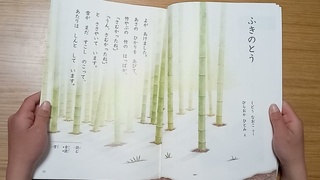 ふきのとう
くどう なおこ さく
よが あけました。
あさの ひかりを あびて、
竹やぶの 竹の はっぱが、
「さむかったね。」
「うん、さむかったね。」
と ささやいて います。
雪が まだ すこし のこって、
あたりは しんと して います。